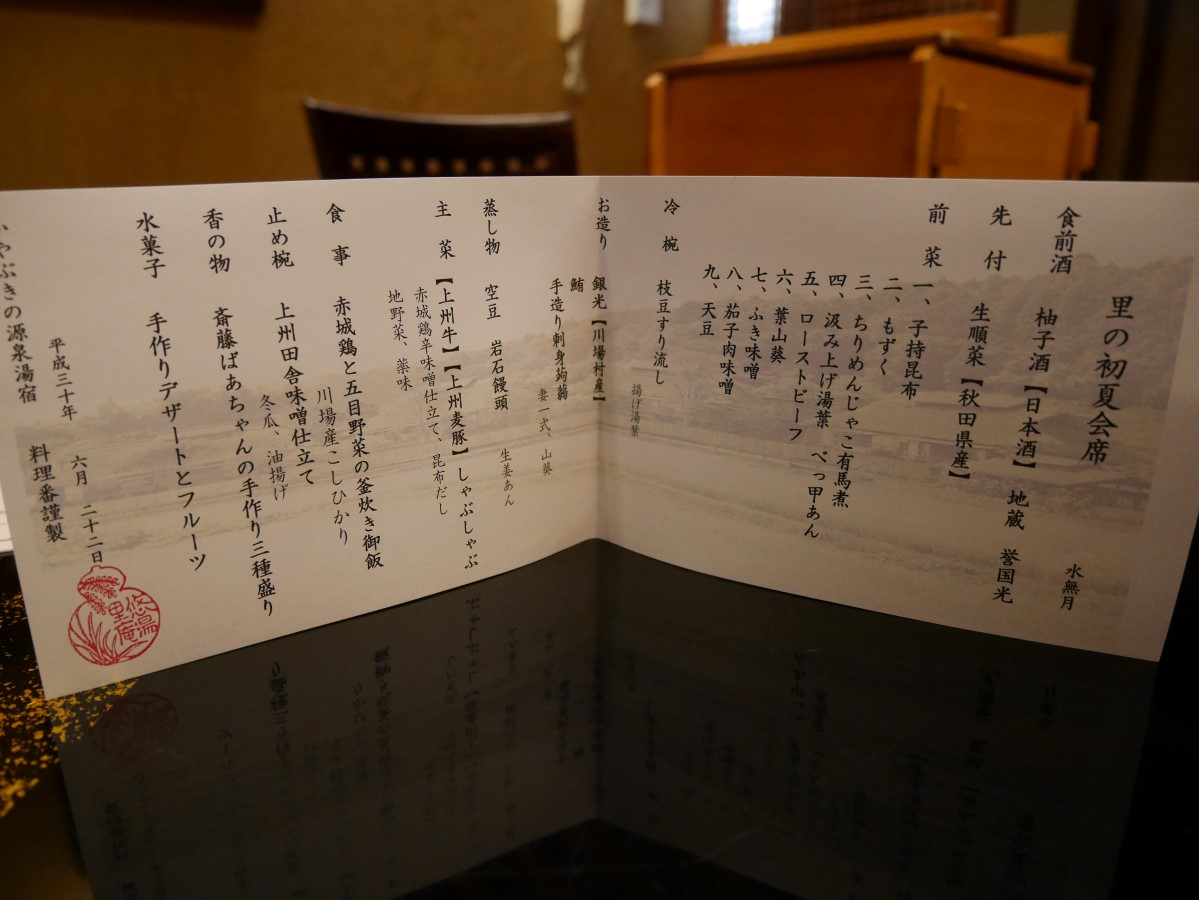 里の初夏会席
水無月
食前酒 柚子酒【日本酒】 地蔵 誉国光
先付 生順菜【秋田県産】
前菜 一、子持昆布
二、もずく
三、ちりめんじゃこ有馬煮
四、汲み上げ湯葉 べっ甲あん
五、ローストビーフ
六、葉山葵
七、ふき味噌
八、茄子肉味噌
九、天豆
冷椀 枝豆すり流し
揚げ湯葉
お造り 銀光【川場村産】
鮪
手造り刺身蒟蒻
妻一式、山葵
蒸し物 空豆 岩石饅頭
生姜あん
主菜 【上州牛】【上州麦豚】しゃぶしゃぶ
赤城鶏辛味噌仕立て、昆布だし
地野菜、薬味
食事 赤城鶏と五目野菜の釜炊き御飯
川場産こしひかり
止め椀 上州田舎味噌仕立て
冬瓜、油揚げ
香の物 斎藤ばあちゃんの手作り三種盛り
水菓子 手作りデザートとフルーツ
平成三十年 六月 二十二日
かやぶきの源泉湯宿 料理番謹製
悠湯里庵